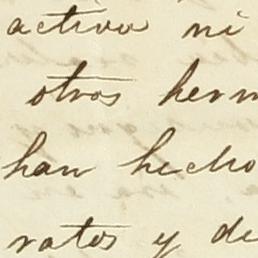 activa ni
otros herm
han hecho
ratos y de